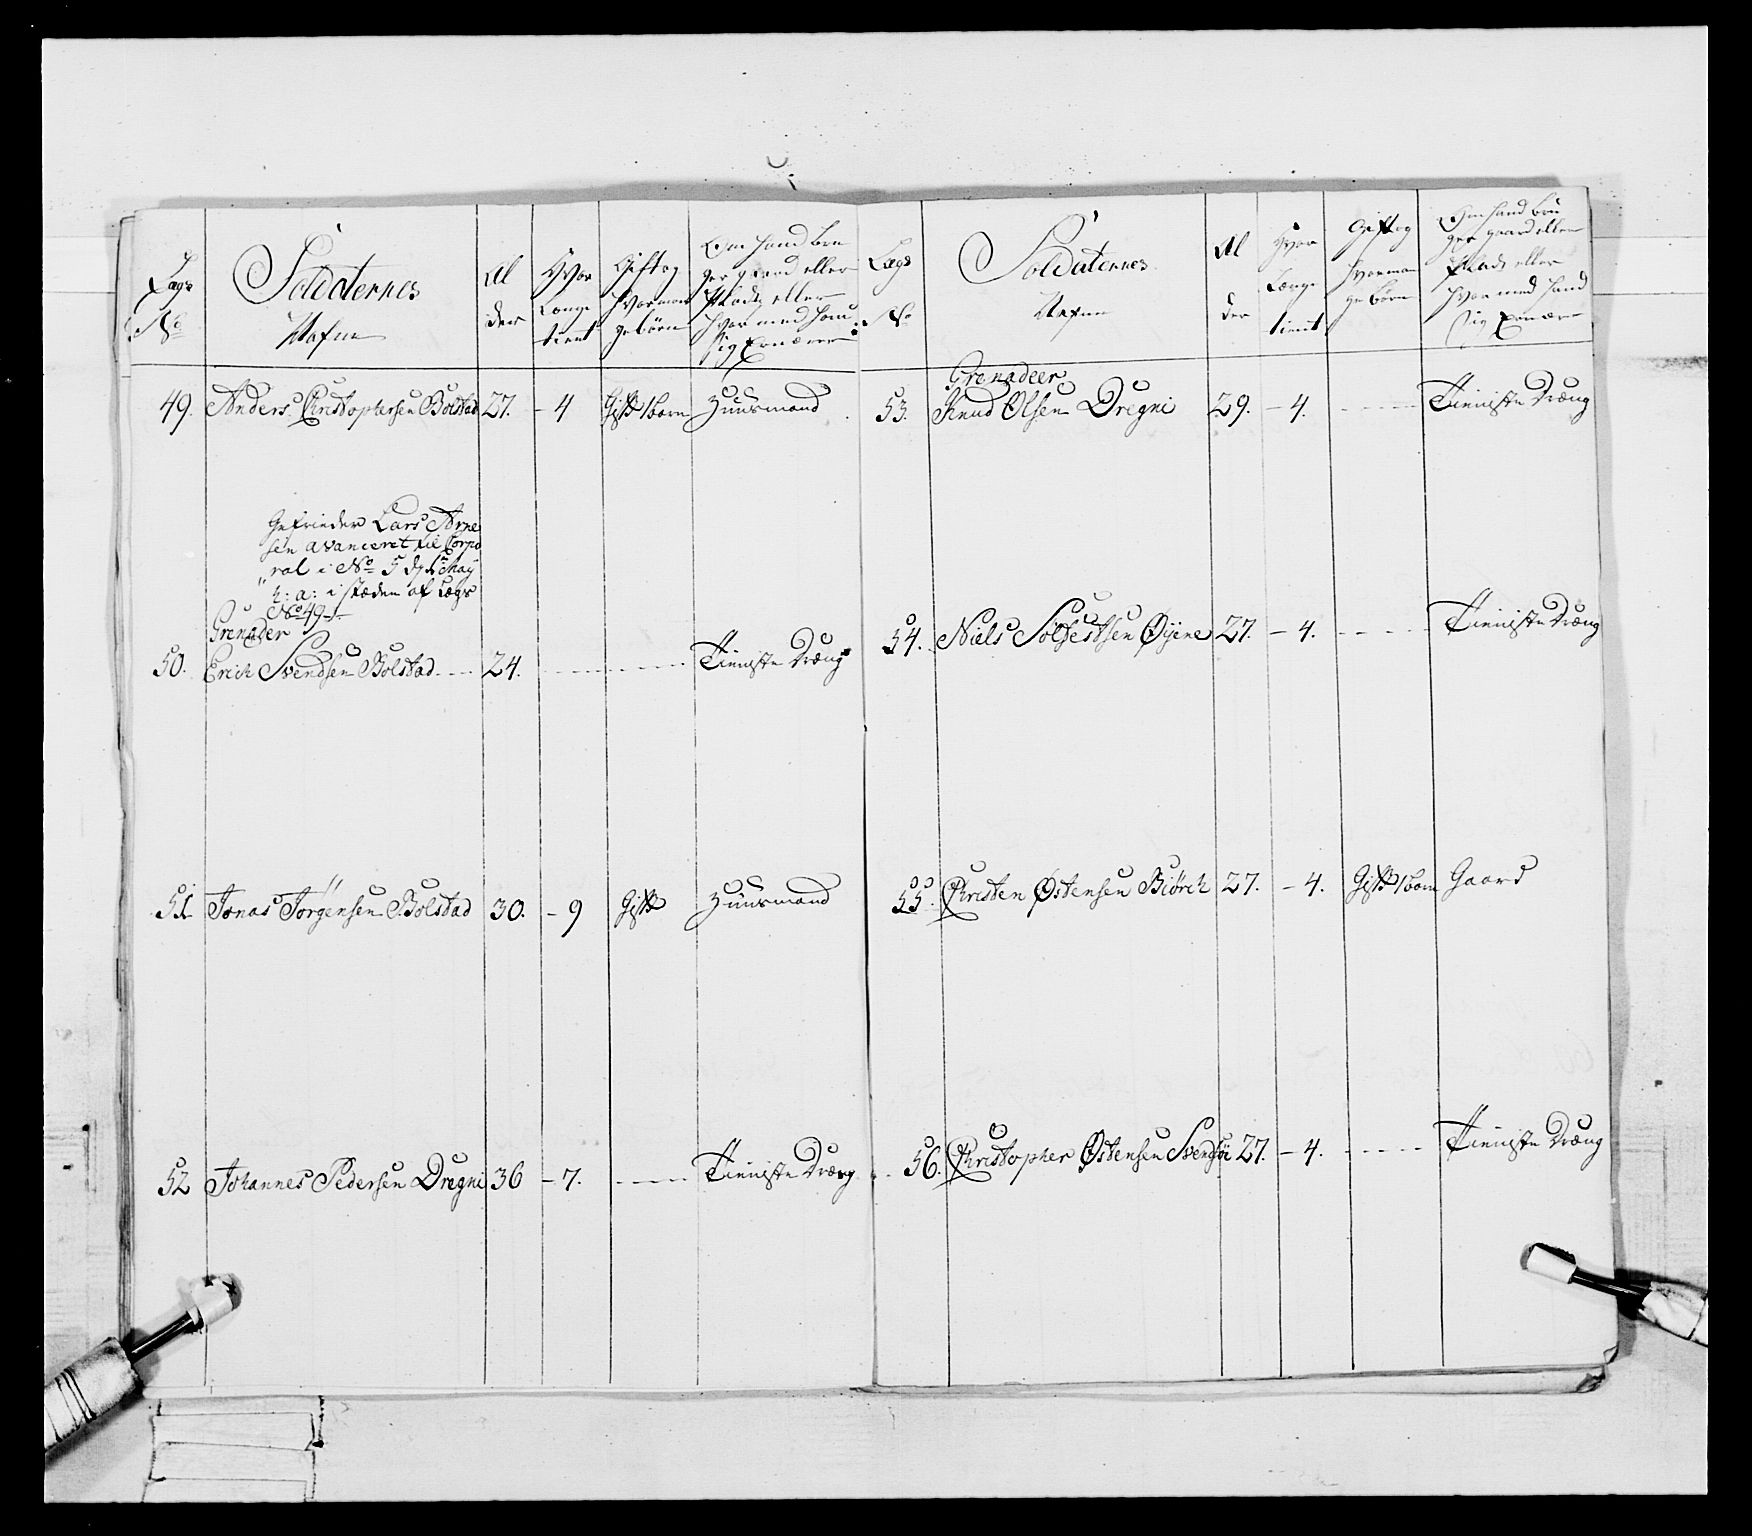 Lægs
No
Soldaternes
Nafne
Al
der
Hvor
Længe
tient
Gift og
hvorman
ge børn
Om hand bru
ger gaard eller
Plads eller
hvor med hand
sig Ernærer
49. Anders Christophersen Bolstad 27. - 4 Gift 1 barn Huusmand
Gefrieder Lars Arne
sen avanceret til Corpo
ral i No 5
h: a: i stæden af Lægs
No 49
Grenader
50. Erich Svendsen Bolstad 24. Tieniste Dræng
51 Jonas Jørgensen Bolstad 30. - 9 Gift Huusmand
52 Johannes Pedersen Dregni 36 - 7. Tieniste Dræng
Lægs
No
Soldaternes
Nafne
Al
der
Hvor
Længe
tient
Gift og
hvorman
ge børn
Om hand bru
ger gaard eller
Plads eller
hvor med hand
sig Ernærer
Grenadeer
53. Knud Olsen Dregni 29. - 4. Tieniste Dræng
54. Niels Solfestsen Øyene 27. - 4. Tieniste Dræng
55. Christen Østensen Biørch 27. - 4. Gift 1 barn Gaard
56. Christopher Østensen Svendsøi 27. - 4. Tieniste Dræng